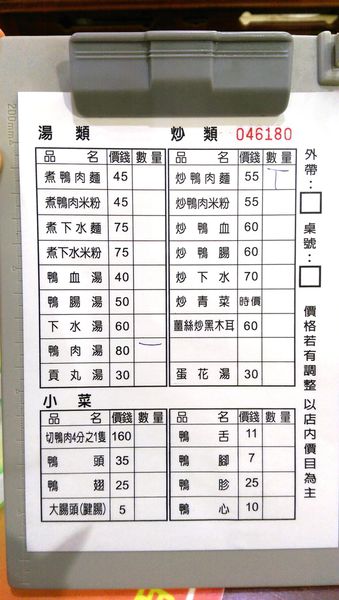 湯類 炒類 046180
品名 價錢 數量 品名 價錢 數量
煮鴨肉麵 45 炒鴨肉麵 55 丅
煮鴨肉米粉 45 炒鴨肉米粉 55
煮下水麵 75 炒鴨血 60
煮下水米粉 75 炒鴨腸 60
鴨血湯 40 炒下水 70
鴨腸湯 50 炒青菜 時價
下水湯 60 薑絲炒黑木耳 60
鴨肉湯 80 一
貢丸湯 30 蛋花湯 30
小菜
品名 價錢 數量 品名 價錢 數量
切鴨肉4分之1隻 160 鴨舌 11
鴨頭 35 鴨腳 7
鴨翅 25 鴨胗 25
大腸頭(腱腸) 5 鴨心 10
外帶：□ 桌號：□
價格若有調整 以店內價目為主
200mm